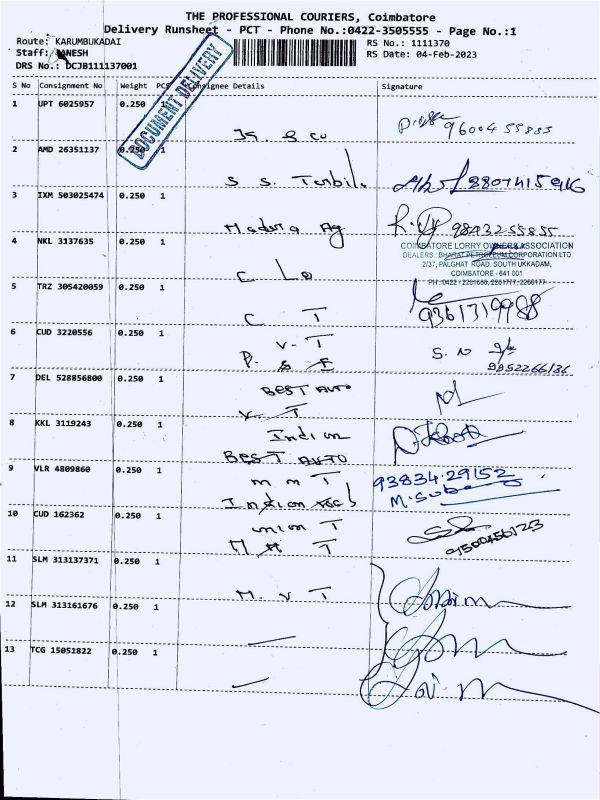 THE PROFESSIONAL COURIERS, Coimbatore
Delivery Runsheet - PCT - Phone No.:0422-3505555 - Page No.:1
Route: KARUMBUKADAI
RS No.: 1111370
Staff: GANESH
RS Date: 04-Feb-2023
DRS No.: DCJB111137001
DOCUMENT DELIVERY
S No Consignment No Weight PCS Consignee Details Signature
1 UPT 6025957 0.250 1
9600455885
2 AMD 26351137 0.250 1
S S.
3 IXM 503025474 0.250 1
Madura Ag
4 NKL 3137635 0.250 1
COIMBATORE LORRY OWNERS ASSOCIATION
DEALERS : BHARAT PETROLEUM CORPORATION LTD
2/37, PALGHAT ROAD, SOUTH UKKADAM,
COIMBATORE - 641 001
5 TRZ 305420059 0.250 1
C T
9361719988
6 CUD 3220556 0.250 1
V. T
7 DEL 528856800 0.250 1
BEST AUTO
V T
8 KKL 3119243 0.250 1
Indian
BEST AUTO
9 VLR 4809860 0.250 1
m m T
93834.29152
Indian
10 CUD 162362 0.250 1
union T
9500456123
11 SLM 313137371 0.250 1
M V T
12 SLM 313161676 0.250 1
13 TCG 15051822 0.250 1